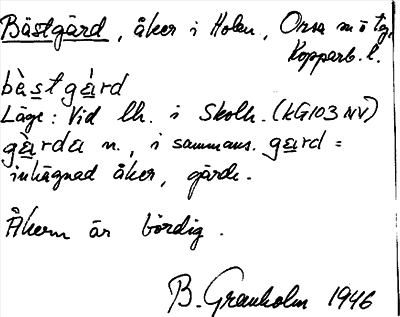 Bästgård, åker i Holen, Orsa sn ö tg,
Kopparb. l.
bàstgàrd
Läge: Vid lh. i Skolh. (KG103 NV)
gàrda n., i sammans. gard =
inhägnad åker, gärde.
Åkern är bördig.
B. Granholm 1946